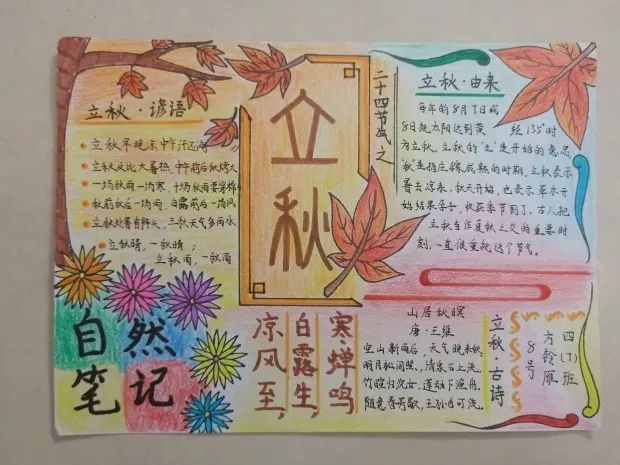 立秋·谚语
立秋早晚凉，中午汗还湿
立秋反比大暑热，中午前后似烤火
一场秋雨一场寒，十场秋雨要穿棉
秋前秋后一场雨，白露前后一场风
立秋处暑有阵头，三秋天气多雨水
立秋晴，一秋晴；
立秋雨，一秋雨
二十四节气之
立秋
立秋·由来
每年的8月7日或
8日视太阳达到黄经135°时
为立秋。立秋的"立"是开始的意思
"秋"是指庄稼成熟的时期。立秋表示
暑去凉来，秋天开始，也表示草木开
始结果孕子，收获季节到了。古人把
立秋当作夏秋之交的重要时
刻，一直很重视这个节气。
自然
笔记
凉风至，
白露生，
寒蝉鸣
山居秋暝
唐·王维
空山新雨后，天气晚来秋。
明月松间照，清泉石上流。
竹喧归浣女，莲动下渔舟。
随意春芳歇，王孙自可流。
立秋·古诗
四(7)班
方铃雁
8号